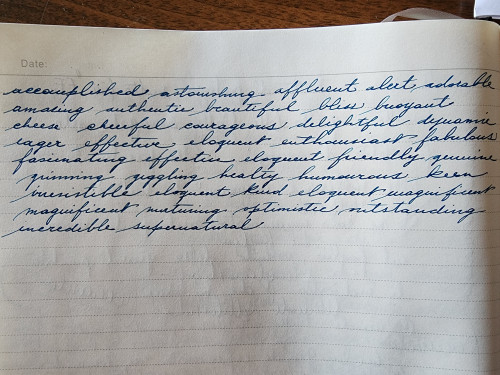 Date:
accomplished astonishing affluent alert adorable
amazing authentic beautiful bliss buoyant
cheese cheerful courageous delightful dynamic
eager effective eloquent enthousiast fabulous
fascinating effective eloquent friendly genuine
grinning giggling healty humourous keen
irresistible eloquent kind eloquent magnificent
magnificent maturing optimistic outstanding
incredible supernatural